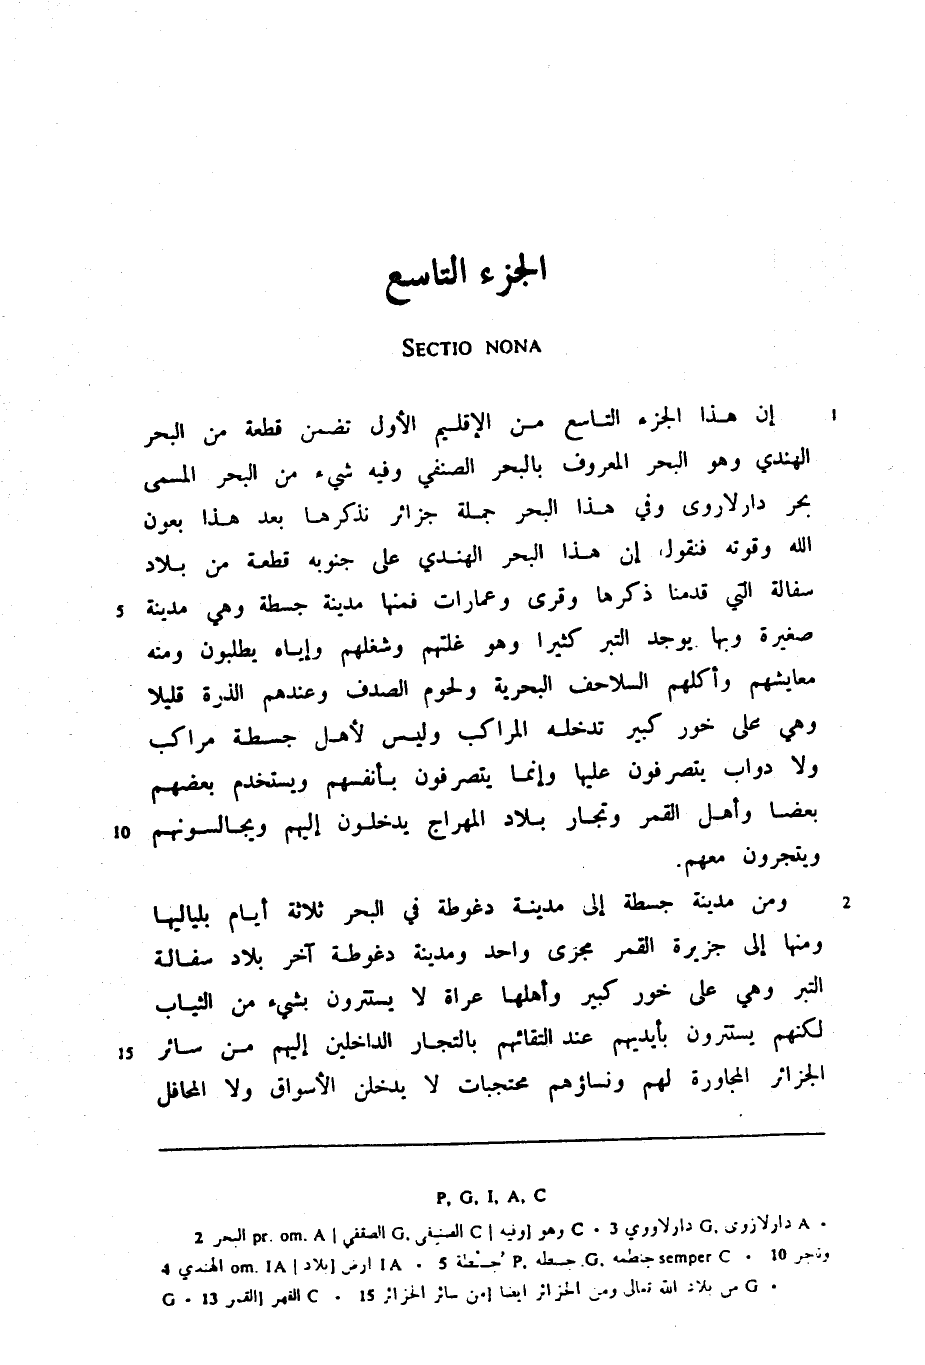 الجزء التاسع
SECTIO NONA
1 إن هذا الجزء التاسع من الإقليم الأول تضمن قطعة من البحر
الهندي وهو البحر المعروف بالبحر الصنفي وفيه شيء من البحر المسمى
بحر دارلاروى وفي هذا البحر جملة جزائر نذكرها بعد هذا بعون
الله وقوته فنقول إن هذا البحر الهندي على جنوبه قطعة من بلاد
سفالة التي قدمنا ذكرها وقرى وعمارات فمنها مدينة جسطة وهي مدينة 5
صغيرة وبها يوجد التبر كثيرا وهو غلتهم وشغلهم وإياه يطلبون ومنه
معايشهم وأكلهم السلاحف البحرية ولحوم الصدف وعندهم الذرة قليلا
وهي على خور كبير تدخله المراكب وليس لأهل جسطة مراكب
ولا دواب يتصرفون عليها وإنما يتصرفون بأنفسهم ويستخدم بعضهم
بعضا وأهل القمر وتجار بلاد المهراج يدخلون إليهم ويجالسونهم 10
ويتجرون معهم.
2 ومن مدينة جسطة إلى مدينة دغوطة في البحر ثلاثة أيام بلياليها
ومنها إلى جزيرة القمر مجرى واحد ومدينة دغوطة آخر بلاد سفالة
التبر وهي على خور كبير وأهلها عراة لا يستترون بشيء من الثياب
لكنهم يستترون بأيديهم عند التقائهم بالتجار الداخلين إليهم من سائر 15
الجزائر المجاورة لهم ونساؤهم محتجبات لا يدخلن الأسواق ولا المحافل
P, G, I, A, C
2 البحر pr. om. A | الصقفي G, الصنيفى C | وفيه] وهو C · 3 دارلاووي G, دارلازوى A ·
4 الهندي om. IA | بلاد] ارض IA · 5 P, جسطه G, semper C · 10 وتجر
G · 13 القمر] القهر C · 15 من سائر الجزائر] من بلاد الله تعالى ومن الجزائر ايضا G ·